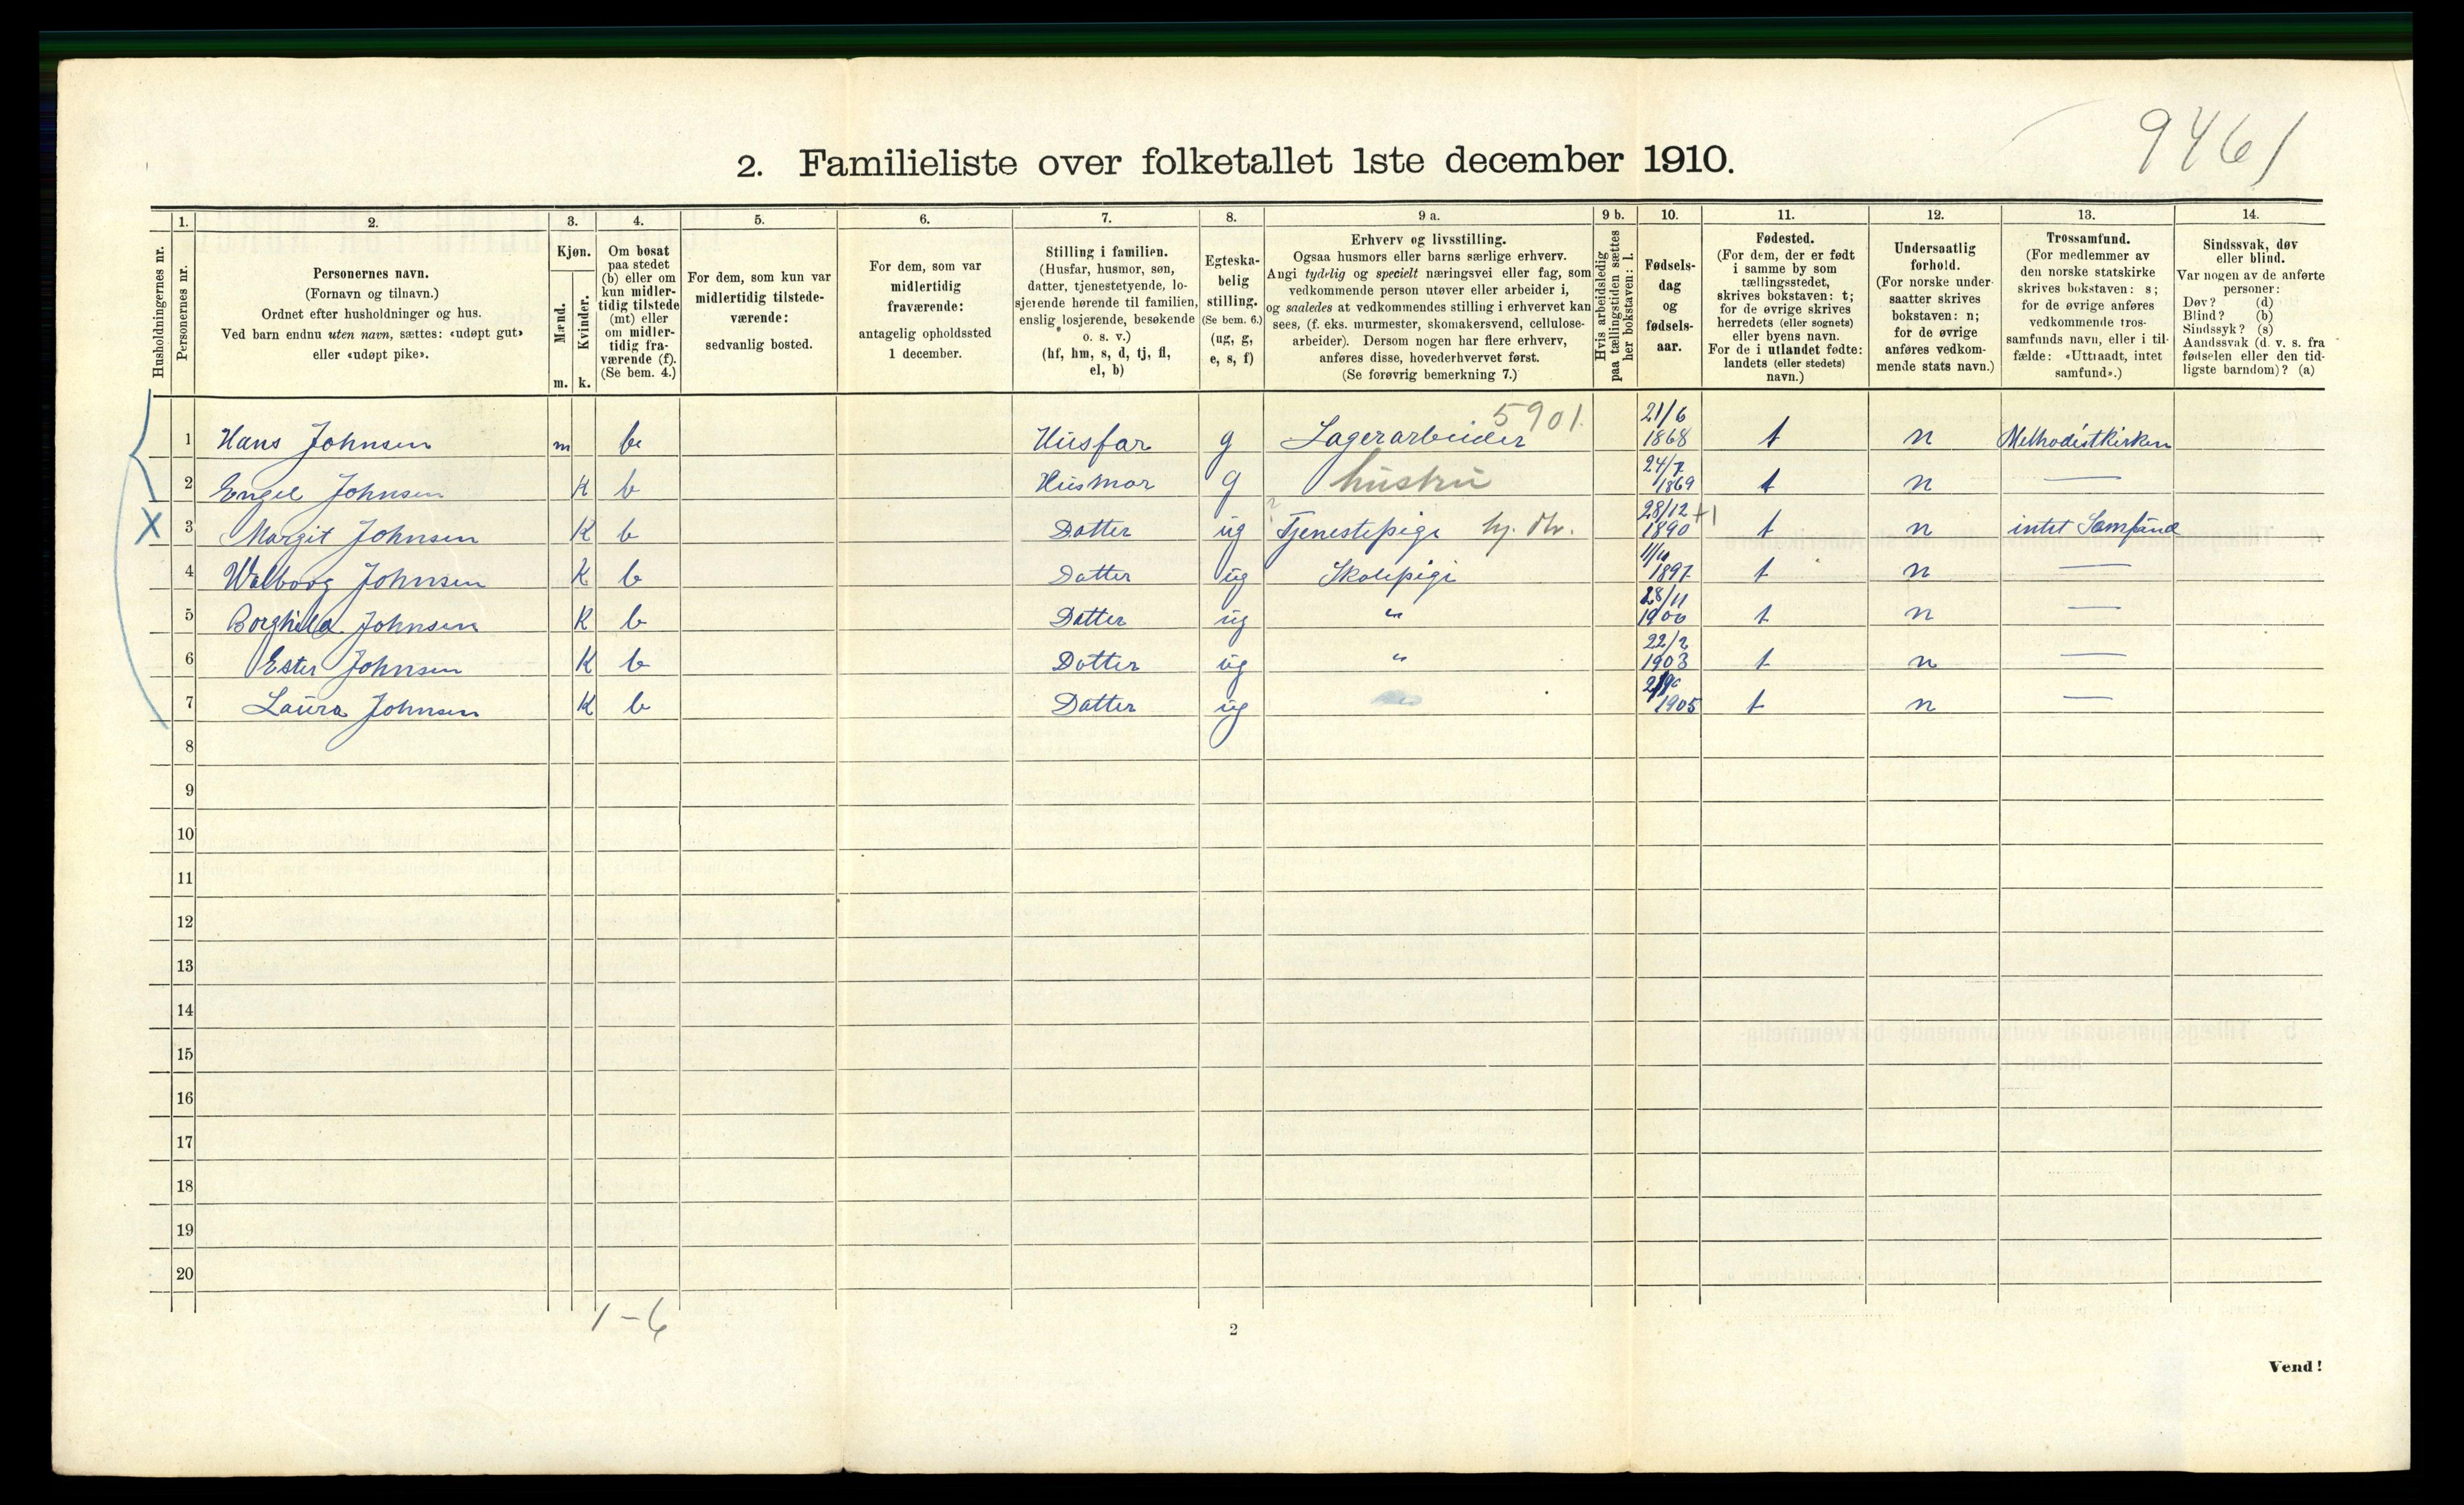 9461
2. Familieliste over folketallet 1ste december 1910.
1. 2. 3. 4. 5. 6. 7. 8. 9 a. 9 b. 10. 11. 12. 13. 14.
Husholdningernes nr.
Personernes nr.
Personernes navn.
(Fornavn og tilnavn.)
Ordnet efter husholdninger og hus.
Ved barn endnu uten navn, sættes: «udøpt gut»
eller «udøpt pike».
Kjøn.
Mænd.
Kvinder.
m. k.
Om bosat
paa stedet
(b) eller om
kun midler-
tidig tilstede
(mt) eller
om midler-
tidig fra-
værende (f).
(Se bem. 4.)
For dem, som kun var
midlertidig tilstede-
værende:
sedvanlig bosted.
For dem, som var
midlertidig
fraværende:
antagelig opholdssted
1 december.
Stilling i familien.
(Husfar, husmor, søn,
datter, tjenestetyende, lo-
sjerende hørende til familien,
enslig losjerende, besøkende
o. s. v.)
(hf, hm, s, d, tj, fl,
el, b)
Egteska-
belig
stilling.
(Se bem. 6.)
(ug, g,
e, s, f)
Erhverv og livsstilling.
Ogsaa husmors eller barns særlige erhverv.
Angi tydelig og specielt næringsvei eller fag, som
vedkommende person utøver eller arbeider i,
og saaledes at vedkommendes stilling i erhvervet kan
sees, (f. eks. murmester, skomakersvend, cellulose-
arbeider). Dersom nogen har flere erhverv,
anføres disse, hovederhvervet først.
(Se forøvrig bemerkning 7.)
Hvis arbeidsledig
paa tællingstiden sættes
her bokstaven: l.
Fødsels-
dag
og
fødsels-
aar.
Fødested.
(For dem, der er født
i samme by som
tællingsstedet,
skrives bokstaven: t;
for de øvrige skrives
herredets (eller sognets)
eller byens navn.
For de i utlandet fødte:
landets (eller stedets)
navn.)
Undersaatlig
forhold.
(For norske under-
saatter skrives
bokstaven: n;
for de øvrige
anføres vedkom-
mende stats navn.)
Trossamfund.
(For medlemmer av
den norske statskirke
skrives bokstaven: s;
for de øvrige anføres
vedkommende tros-
samfunds navn, eller i til-
fælde: «Uttraadt, intet
samfund».)
Sindssvak, døv
eller blind.
Var nogen av de anførte
personer:
Døv? (d)
Blind? (b)
Sindssyk? (s)
Aandssvak (d. v. s. fra
fødselen eller den tid-
ligste barndom)? (a)
5901.
1 Hans Johnsen m b Husfar g Lagerarbeider 21/6 1868 t n Methodistkirken
2 Engel Johnsen K b Husmor g hustru 24/7 1869 t n —
X 3 Margit Johnsen K b Datter ug ? Tjenestepige hj. dtr. 28/12 1890 +1 t n intet Samfund
4 Walborg Johnsen K b Datter ug Skolepige 11/10 1897 t n —
5 Borghild Johnsen K b Datter ug " 28/11 1900 t n —
6 Ester Johnsen K b Datter ug " 22/2 1903 t n —
7 Laura Johnsen K b Datter ug 1905 t n —
8
9
10
11
12
13
14
15
16
17
18
19
20
1-6
2
Vend!